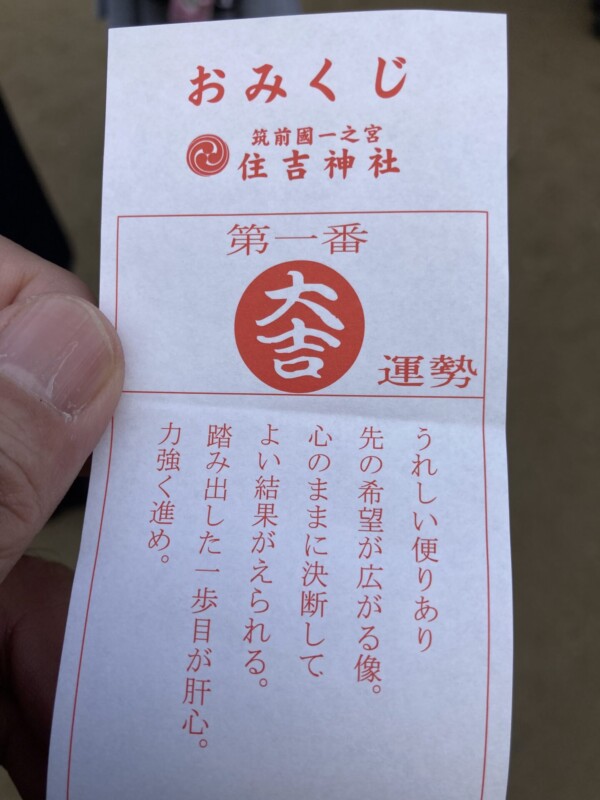 おみくじ
筑前國一之宮
住吉神社
第一番
大吉
運勢
うれしい便りあり
先の希望が広がる像。
心のままに決断して
よい結果がえられる。
踏み出した一歩目が肝心。
力強く進め。